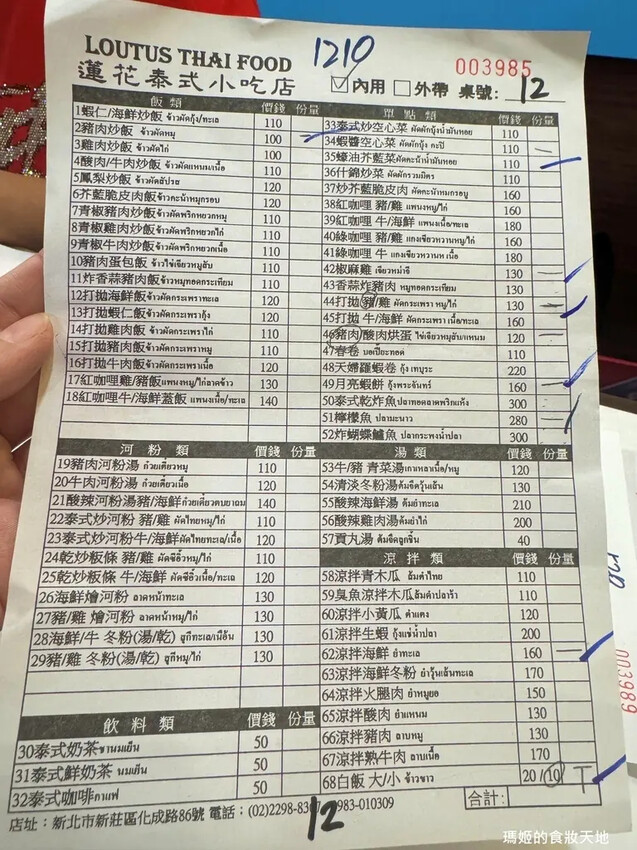 LOUTUS THAI FOOD
1210
003985
蓮花泰式小吃店
☑內用 □外帶 桌號: 12
飯類 價錢 份量
1蝦仁/海鮮炒飯 ข้าวผัดกุ้ง/ทะเล 110
2豬肉炒飯 ข้าวผัดหมู 100
3雞肉炒飯 ข้าวผัดไก่ 100
4酸肉/牛肉炒飯 ข้าวผัดแหนมเนื้อ 110
5鳳梨炒飯 ข้าวผัดสัปรส 120
6芥藍脆皮肉飯 ข้าวคะน้าหมูกรอบ 120
7青椒豬肉炒飯 ข้าวผัดพริกหยวกหมู 110
8青椒雞肉炒飯 ข้าวผัดพริกหยวกไก่ 110
9青椒牛肉炒飯 ข้าวผัดพริกหยวกเนื้อ 110
10豬肉蛋包飯 ข้าวไข่เจียวหมูสับ 110
11炸香蒜豬肉飯 ข้าวหมูทอดกระเทียม 110
12打拋海鮮飯 ข้าวผัดกระเพราทะเล 120
13打拋蝦仁飯 ข้าวผัดกระเพรากุ้ง 120
14打拋雞肉飯 ข้าวผัดกระเพราไก่ 110
15打拋豬肉飯 ข้าวผัดกระเพราหมู 110
16打拋牛肉飯 ข้าวผัดกระเพราเนื้อ 120
17紅咖哩雞/豬飯 แพนงหมู/ไก่ลาดข้าว 130
18紅咖哩牛/海鮮蓋飯 แพนงเนื้อ/ทะเล 140
河粉類 價錢 份量
19豬肉河粉湯 ก๋วยเตี๋ยวหมู 110
20牛肉河粉湯 ก๋วยเตี๋ยวเนื้อ 120
21酸辣河粉湯豬/海鮮 ก๋วยเตี๋ยวต้มยำถม 140
22泰式炒河粉 豬/雞 ผัดไทยหมู/ไก่ 110
23泰式炒河粉 牛/海鮮 ผัดไทยทะเล/เนื้อ 120
24乾炒粄條 豬/雞 ผัดซีอิ๊วหมู/ไก่ 110
25乾炒粄條 牛/海鮮 ผัดซีอิ๊วเนื้อ/ทะเล 120
26海鮮燴河粉 ลาดหน้าทะเล 130
27豬/雞 燴河粉 ลาดหน้าหมู/ไก่ 130
28海鮮/牛 冬粉(湯/乾) สุกี้ทะเล/เนื้อ 130
29豬/雞 冬粉(湯/乾) สุกี้หมู/ไก่ 130
飲料類 價錢 份量
30泰式奶茶 ชานมเย็น 50
31泰式鮮奶茶 นมเย็น 50
32泰式咖啡 กาแฟ 50
單點類 價錢 份量
33泰式炒空心菜 ผัดผักบุ้งน้ำมันหอย 110
34蝦醬空心菜 ผัดผักบุ้ง กะปิ 110
35蠔油芥藍菜 ผัดคะน้าน้ำมันหอย 110
36什錦炒菜 ผัดผักรวมมิตร 110
37炒芥藍脆皮肉 ผัดคะน้าหมูกรอบ 160
38紅咖哩 豬/雞 แพนงหมู/ไก่ 160
39紅咖哩 牛/海鮮 แพนงเนื้อ/ทะเล 180
40綠咖哩 豬/雞 แกงเขียวหวานหมู/ไก่ 160
41綠咖哩 牛 แกงเขียวหวานเนื้อ 180
42椒麻雞 ข้าวเหม่าจี่ 130
43香蒜炸豬肉 หมูทอดกระเทียม 130
44打拋 豬/雞 ผัดกระเพรา หมู/ไก่ 130
45打拋 牛/海鮮 ผัดกระเพรา เนื้อ/ทะเล 160
46豬肉/酸肉烘蛋 ไข่เจียวหมูสับ/แหนม 120
47春卷 บอเปี๊ยะทอด 110
48天婦羅蝦卷 กุ้ง เทมปุระ 220
49月亮蝦餅 กุ้งพระจันทร์ 160
50泰式乾炸魚 ปลาทอดลาดพริกแห้ง 300
51檸檬魚 ปลามะนาว 280
52炸蝴蝶鱸魚 ปลากระพงน้ำปลา 300
湯類 價錢 份量
53牛/豬 青菜湯 เกาเหลาเนื้อ/หมู 120
54清淡冬粉湯 ต้มจืดวุ้นเส้น 130
55酸辣海鮮湯 ต้มยำทะเล 210
56酸辣雞肉湯 ต้มยำไก่ 200
57貢丸湯 ต้มจืดลูกชิ้น 40
涼拌類 價錢 份量
58涼拌青木瓜 ส้มตำไทย 110
59臭魚涼拌木瓜 ส้มตำปลาร้า 110
60涼拌小黃瓜 ตำแตง 120
61涼拌生蝦 กุ้งแช่น้ำปลา 200
62涼拌海鮮 ยำทะเล 160
63涼拌海鮮冬粉 ยำวุ้นเส้นทะเล 170
64涼拌火腿肉 ยำหมูยอ 150
65涼拌酸肉 ยำแหนม 130
66涼拌豬肉 ลาบหมู 130
67涼拌熟牛肉 ลาบเนื้อ 170
68白飯 大/小 ข้าวขาว 20/10
合計:
店址:新北市新莊區化成路86號 電話:(02)2298-83 983-010309
12
003989
瑪姬的食妝天地